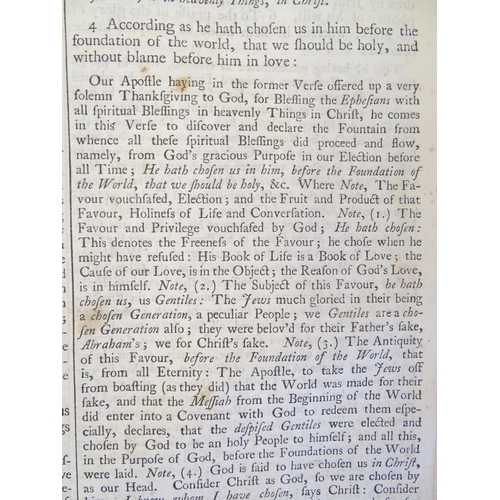 in Heavenly Things, in Christ.
4 According as he hath chosen us in him before the
foundation of the world, that we ſhould be holy, and
without blame before him in love:
Our Apoſtle having in the former Verſe offered up a very
ſolemn Thankſgiving to God, for Bleſſing the Epheſians with
all ſpiritual Bleſſings in heavenly Things in Chriſt, he comes
in this Verſe to diſcover and declare the Fountain from
whence all theſe ſpiritual Bleſſings did proceed and flow,
namely, from God's gracious Purpoſe in our Election before
all Time; He hath choſen us in him, before the Foundation of
the World, that we ſhould be holy, &c. Where Note, The Fa-
vour vouchſafed, Election; and the Fruit and Product of that
Favour, Holineſs of Life and Converſation. Note, (1.) The
Favour and Privilege vouchſafed by God; He hath choſen:
This denotes the Freeneſs of the Favour; he choſe when he
might have refuſed: His Book of Life is a Book of Love; the
Cauſe of our Love, is in the Object; the Reaſon of God's Love,
is in himſelf. Note, (2.) The Subject of this Favour, he hath
choſen us, us Gentiles: The Jews much gloried in their being
a choſen Generation, a peculiar People; we Gentiles are a cho-
ſen Generation alſo; they were belov'd for their Father's ſake,
Abraham's; we for Chriſt's ſake. Note, (3.) The Antiquity
of this Favour, before the Foundation of the World, that
is, from all Eternity: The Apoſtle, to take the Jews off
from boaſting (as they did) that the World was made for their
ſake, and that the Meſſiah from the Beginning of the World
did enter into a Covenant with God to redeem them eſpe-
cially, declares, that the deſpiſed Gentiles were elected and
choſen by God to be an holy People to himſelf; and all this,
in the Purpoſe of God, before the Foundations of the World
were laid. Note, (4.) God is ſaid to have choſen us in Chriſt,
as our Head. Conſider Chriſt as God, ſo we are choſen by
him; I know whom I have choſen, ſays Chriſt: Conſider